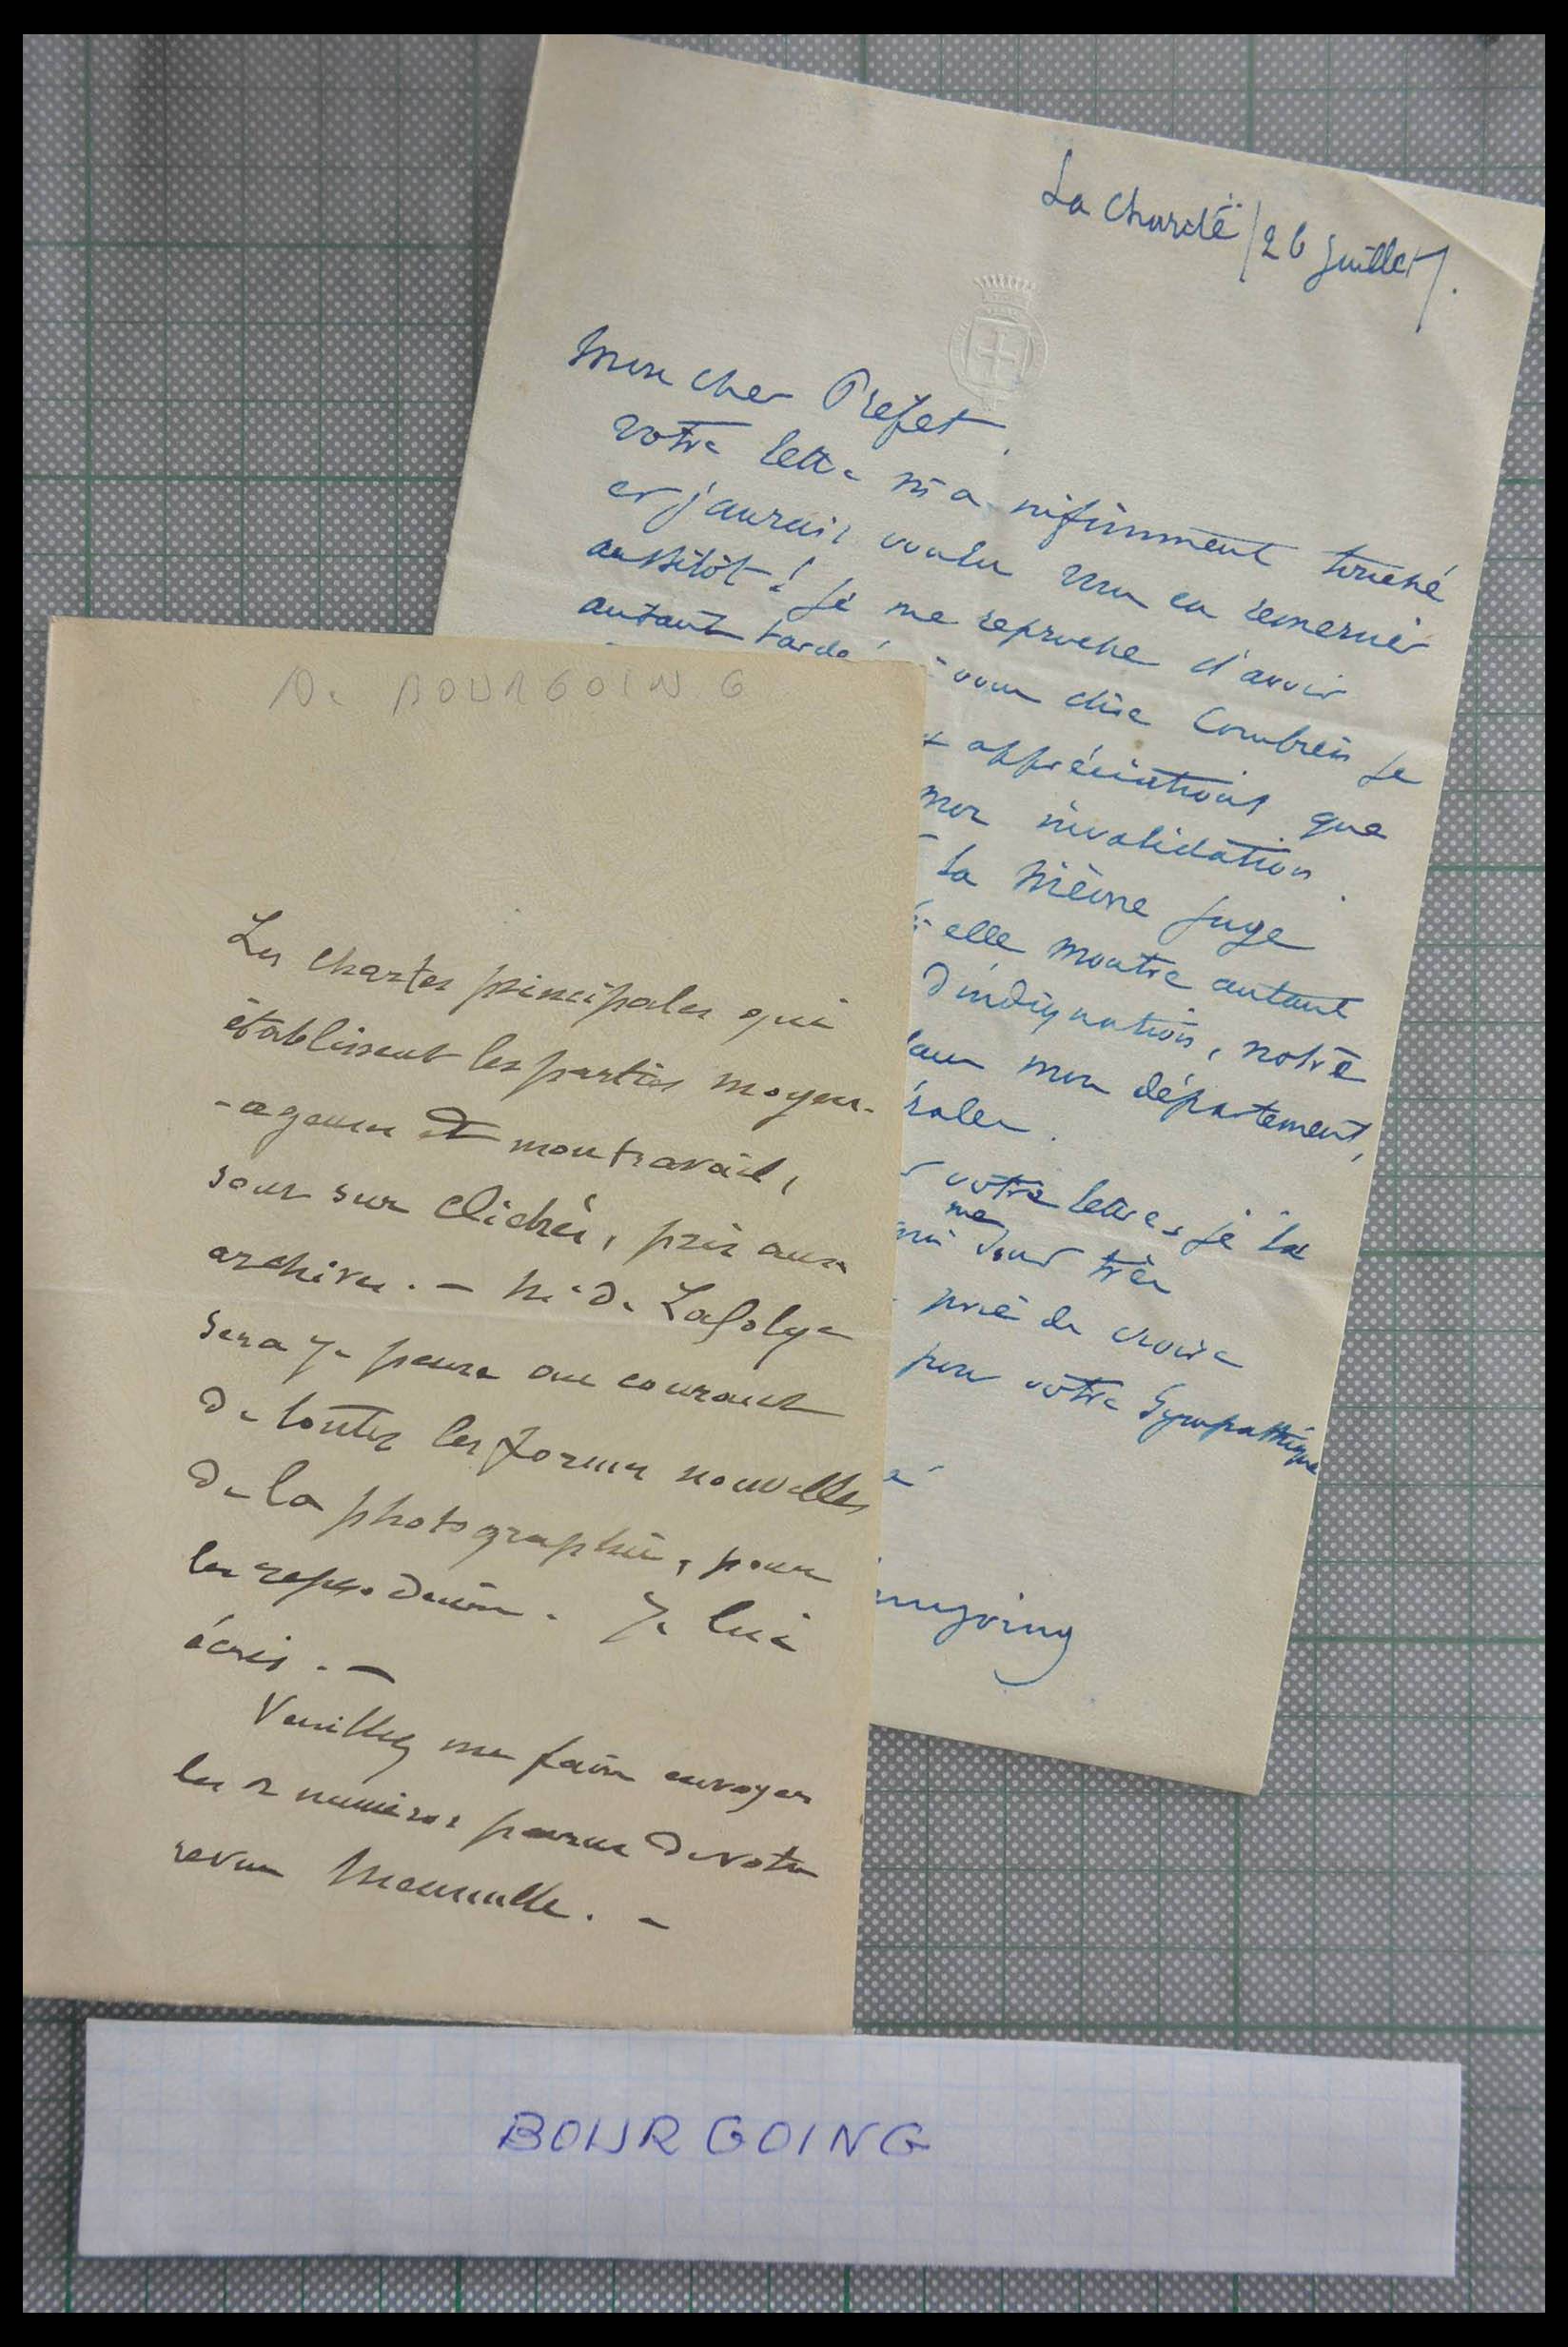 La Charité / 26 Juillet /.
Mon cher Préfet,
votre lettre m'a infiniment touché
et j'aurais voulu vous en remercier
aussitôt ! Je me reproche d'avoir
autant tardé à vous dire combien je
appréciations que
mon invalidation.
la Nièvre juge
elle montre autant
d'indignation, notre
mon département,
votre lettre, je la
me
très
prie de croire
pour votre sympathique
D. BOURGOING
Les chartes principales qui
établissent les parties moyen-
-ageuses de montravail,
sont sur clichés, pris aux
archives. — M. de Lafolye
sera je pense au courant
de toutes les formes nouvelles
de la photographie, pour
les reproduire. Je lui
écris. —
Veuillez me faire envoyer
les 2 numéros parus de votre
revue Mensuelle. —
BOURGOING